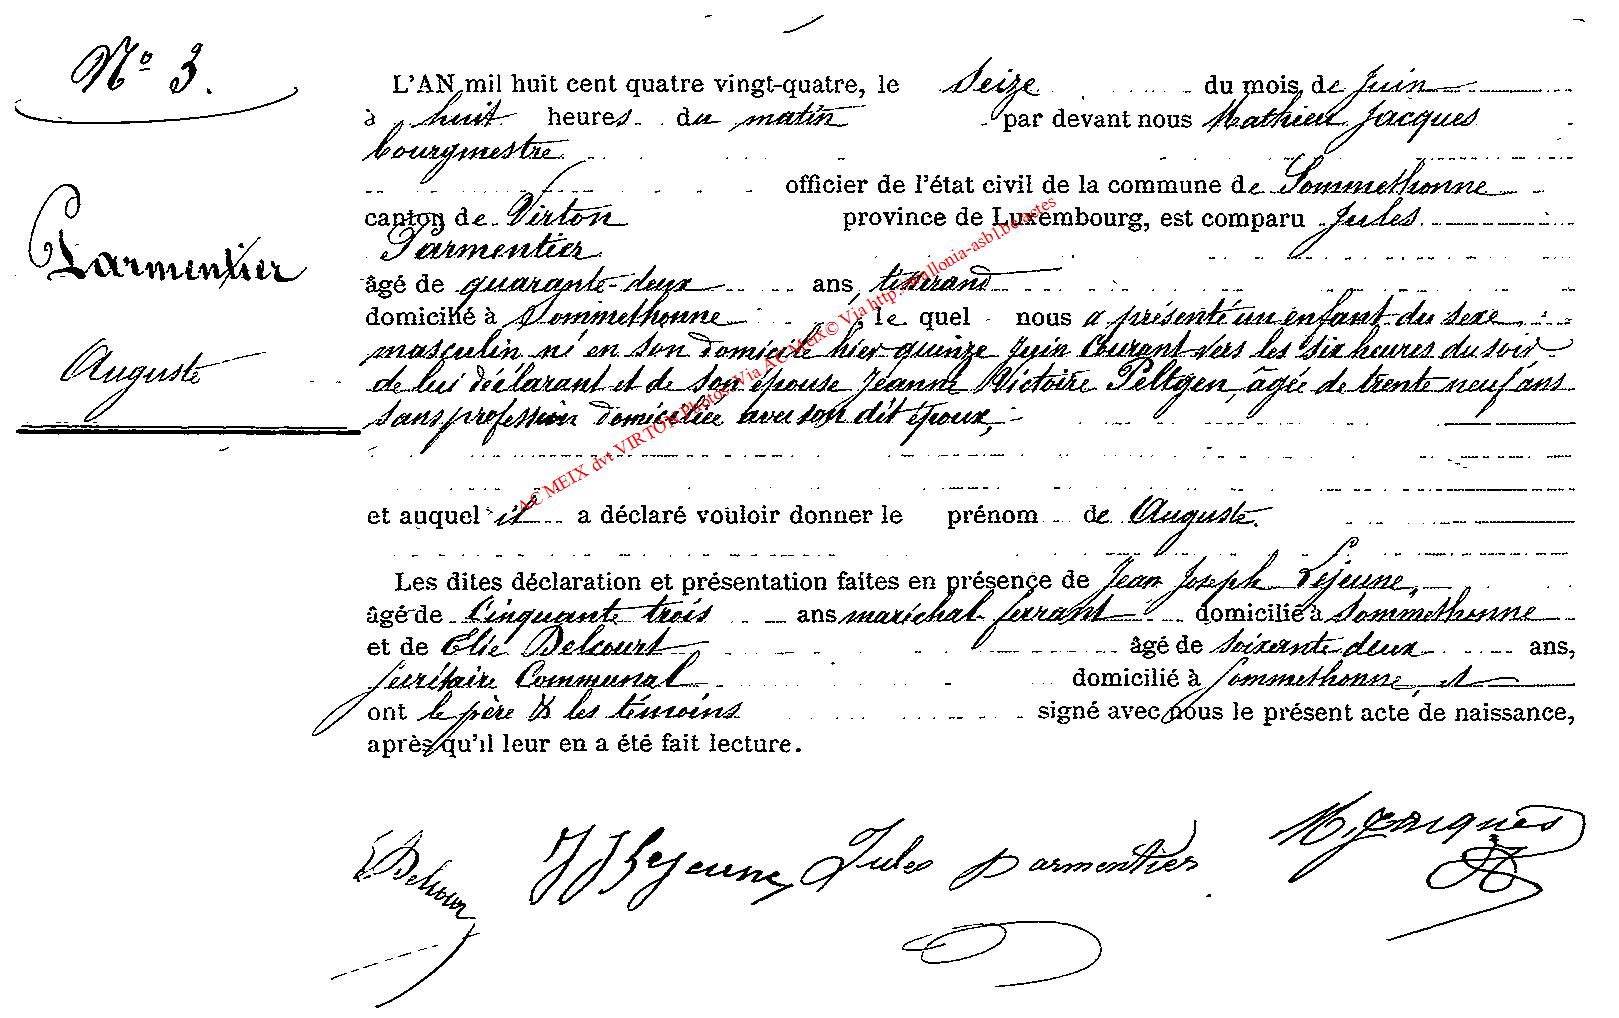 N° 3.
L'AN mil huit cent quatre vingt-quatre, le Seize du mois de Juin
à huit heures du matin par devant nous Mathieu Jacques
bourgmestre
officier de l'état civil de la commune de Sommethonne
canton de Virton province de Luxembourg, est comparu Jules
Parmentier
Parmentier
âgé de quarante-deux ans, tisserand
domicilié à Sommethonne le quel nous a présenté un enfant du sexe
masculin né en son domicile hier quinze Juin Courant vers les six heures du soir
Auguste
de lui déclarant et de son épouse Jeanne Victoire Peltgen, âgée de trente neuf ans
sans profession domiciliée avec son dit époux,
et auquel il a déclaré vouloir donner le prénom de Auguste.
Les dites déclaration et présentation faites en présence de Jean Joseph Lejeune,
âgé de Cinquante trois ans maréchal ferrant domicilié à Sommethonne
et de Elie Delcourt âgé de soixante deux ans,
Secrétaire Communal domicilié à Sommethonne, et
ont le père & les témoins signé avec nous le présent acte de naissance,
après qu'il leur en a été fait lecture.
E Delcour JJ Lejeune Jules parmentier M. Jacques
AC MEIX dvt VIRTON Photos Via AC Meix© Via http://wallonia-asbl.be/actes